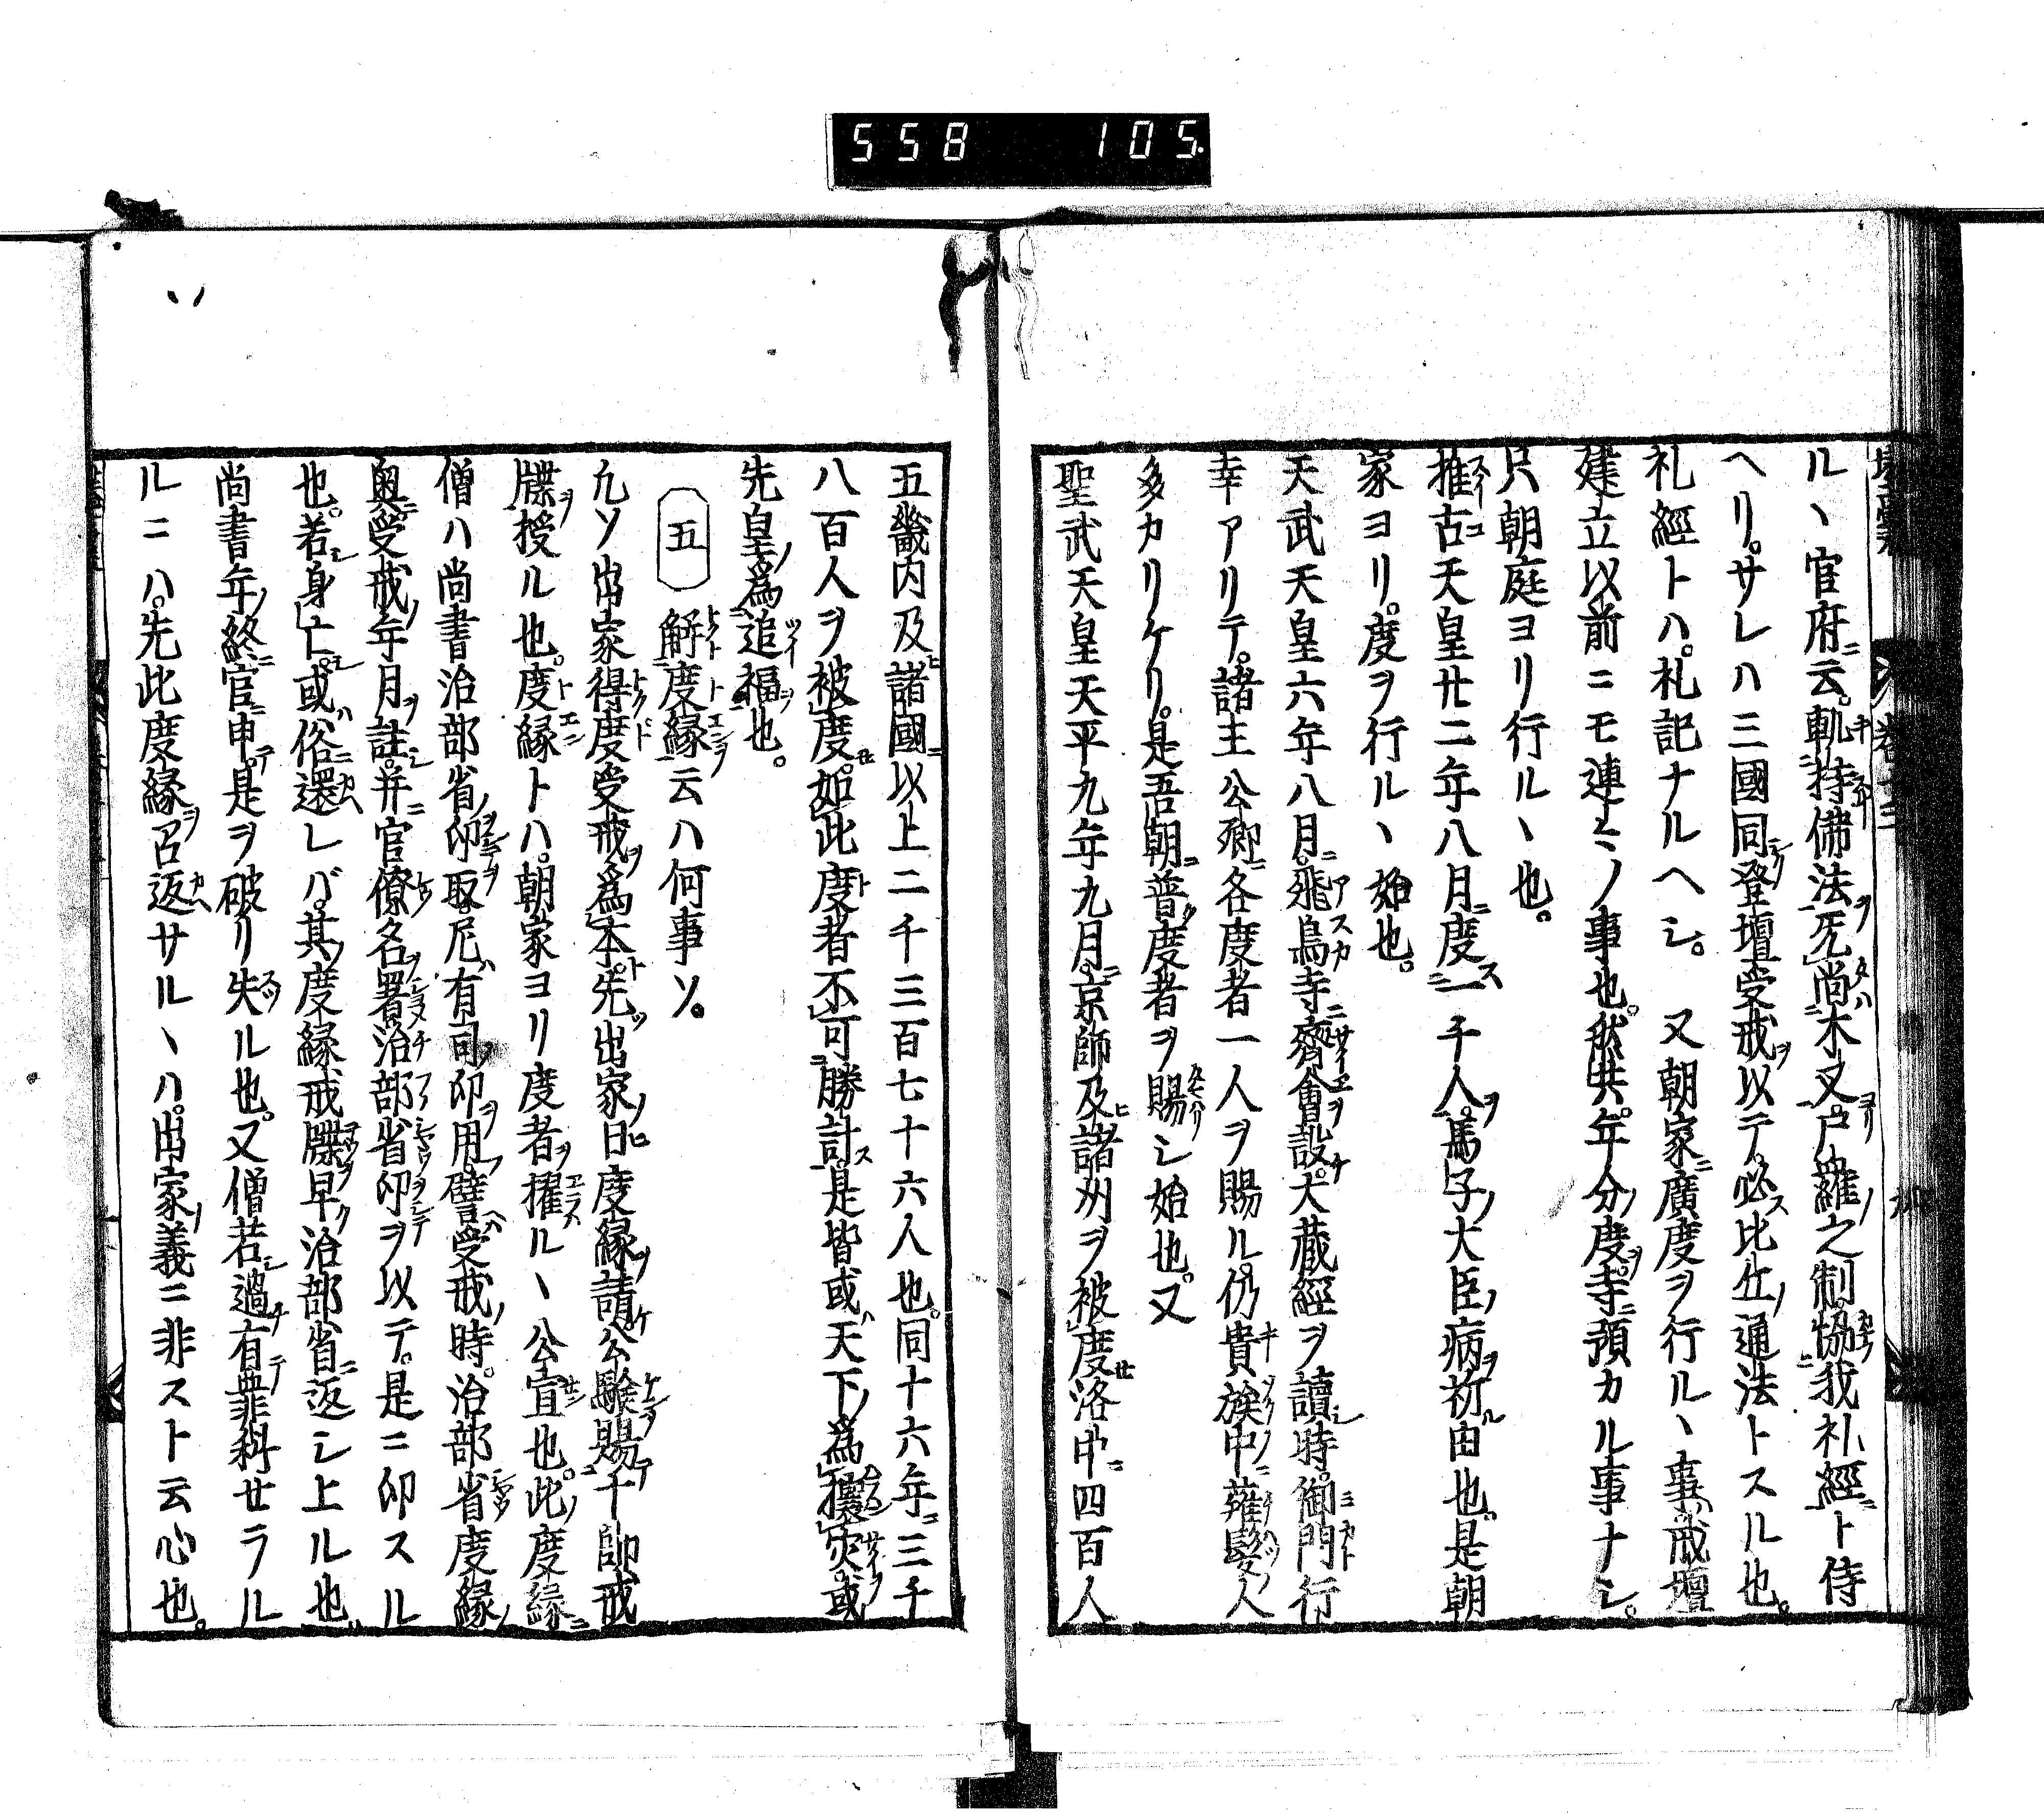 558 105
ル、官府云。軌持佛法既尚木叉。尸羅之制協我礼經ト侍
ヘリ。サレハ三國同登壇受戒以テ。必比丘通法トスル也。
礼經トハ。礼記ナルヘシ。又朝家廣度ヲ行ル、事。戒壇
建立以前ニモ連〻ノ事也。然共。年分度寺預カル事ナシ。
只朝庭ヨリ行ル、也。
推古天皇廿二年八月度一千人。馬子大臣病祈由也。是朝
家ヨリ。度ヲ行ル、始也。
天武天皇六年八月。飛鳥寺齊會設。大藏經ヲ讀時。御門行
幸アリテ。諸王公卿各度者一人ヲ賜ル。仍貴族中薙髮人
多カリケリ。是吾朝普度者ヲ賜シ始也。又
聖武天皇天平九年九月。京師及諸州ヲ被度洛中四百人
五畿内及諸國以上二千三百七十六人也。同十六年三千
八百人ヲ被度。如此度者不可勝計。是皆或天下為攘災。或
先皇為追福也。
五 解度縁云ハ何事ソ。
凡ソ出家得度受戒為本。先出家日度縁請公驗賜十師戒
牒授ル也。度縁トハ。朝家ヨリ度者擢ル、公宣也。此度縁
僧ハ尚書治部省印取。尼有司印用。譬受戒時。治部省度縁
奥受戒年月註。并官僚名署治部省印ヲ以テ。是ニ印スル
也。若身亡。或俗還レバ。其度縁戒牒早治部省返シ上ル也。
尚書年終官申。是ヲ破リ失ル也。又僧若過有罪科セラル
ルニハ。先此度縁召返サル、ハ。出家義ニ非スト云心也。